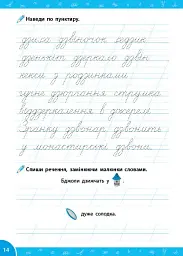 Наведи по пунктиру.
дзиґа дзвіночок ґедзик
дзенькіт дзеркало дзвін
кекси з родзинками
чудне дзюрчання струмка
віддзеркалення в джерелі
Зранку дзвонар дзвонить
у монастирські дзвони.
Спиши речення, замінюючи малюнки словами.
Бджоли движчать у
дуже солодка.
14